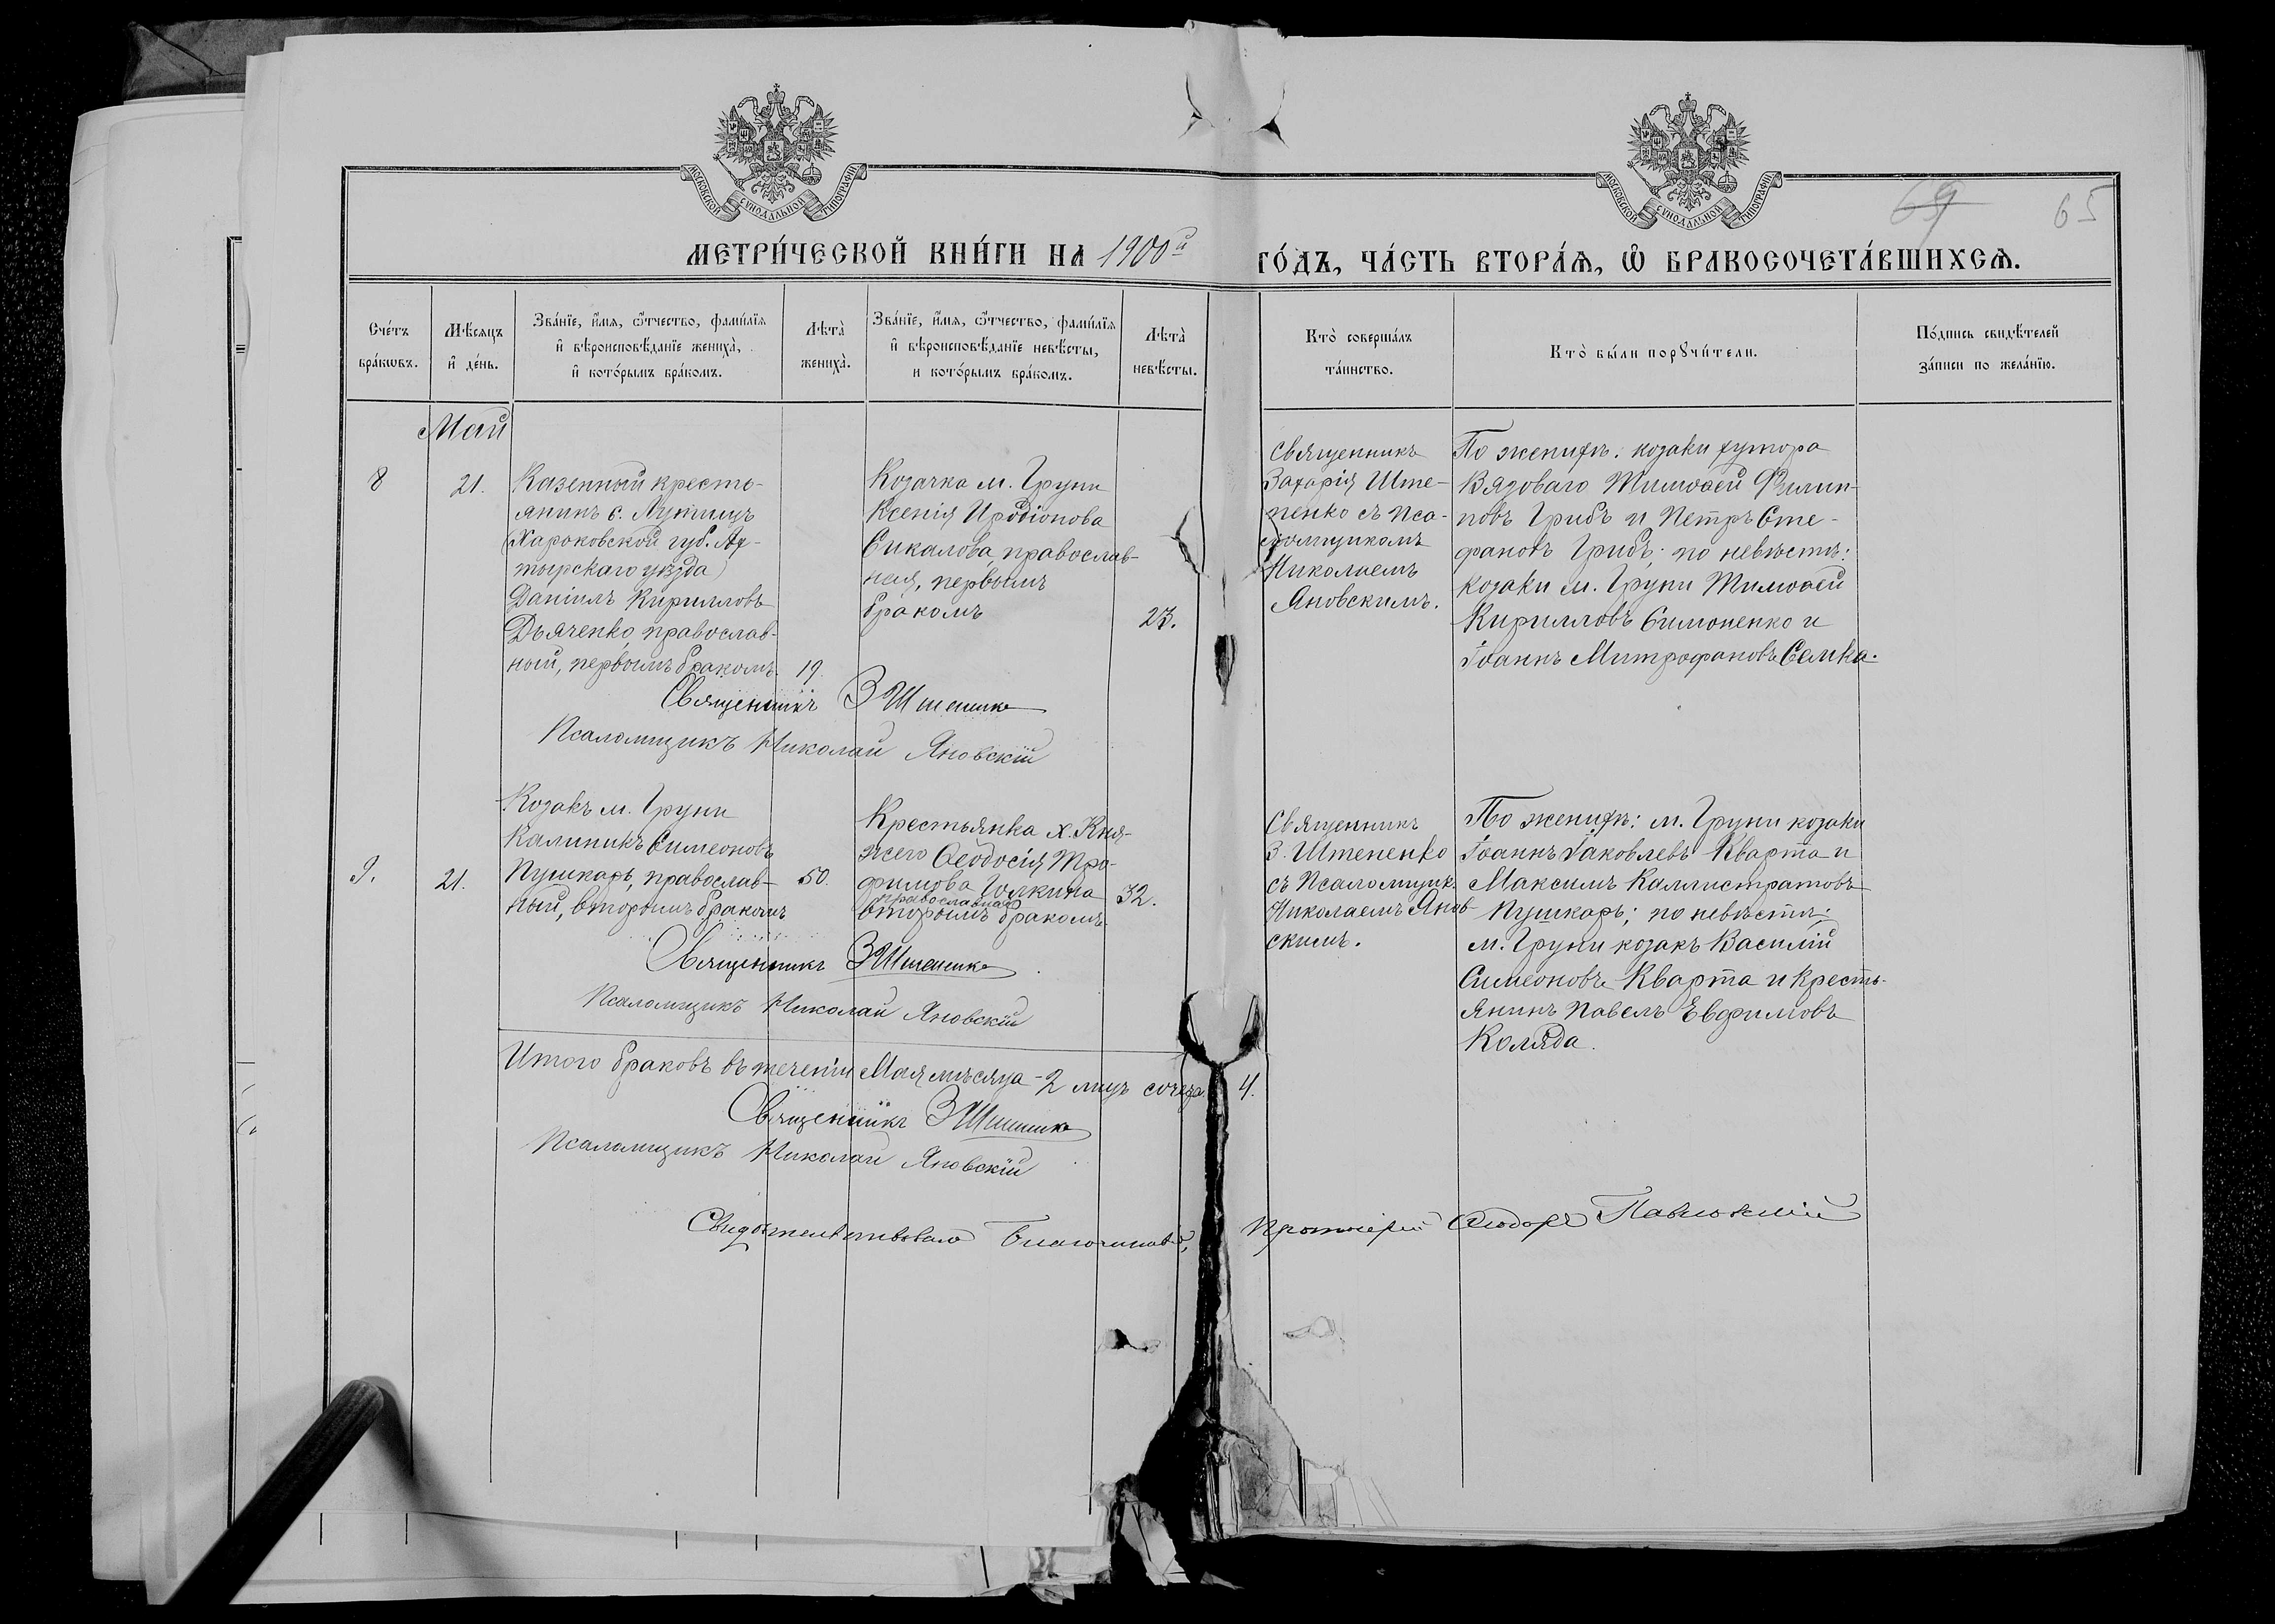 МОСКОВСКОЙ СѴНОДАЛЬНОЙ ТИПОГРАФІИ
МОСКОВСКОЙ СѴНОДАЛЬНОЙ ТИПОГРАФІИ
69 65
МЕТРИ́ЧЕСКОЙ КНИ́ГИ НА 1900й ГО́ДЪ, ЧА́СТЬ ВТОРА́Ѧ, Ѡ҆ БРАКОСОЧЕТА́ВШИХСѦ.
Сче́тъ
бра́кѡвъ.
Мѣ́сяцъ
и҆ де́нь.
Зва́нїе, и҆́мя, ѻ҆́тчество, фами́лїя
и҆ вѣроисповѣ́данїе жениха̀,
и҆ кото́рымъ бра́комъ.
Лѣта̀
жениха̀.
Зва́нїе, и҆́мя, ѻ҆́тчество, фами́лїя
и҆ вѣроисповѣ́данїе невѣ́сты,
и кото́рымъ бра́комъ.
Лѣта̀
невѣ́сты.
Кто̀ соверша́лъ
та́инство.
Кто̀ бы́ли порꙋчи́тели.
По́дпись свидѣ́телей
за́писи по жела́нїю.
Май
8
21.
Казенный кресть-
янинъ с.
(Харьковской губ. Ах-
тырскаго уѣзда)
Даніилъ Кирилловъ
Дьяченко, православ-
ный, первымъ бракомъ
19
Козачка м. Груни
Ксенія Иродіонова
Сикалова, православ-
ная, первымъ
бракомъ
23.
Священникъ
Захарія Ште-
пенко съ пса-
ломщикомъ
Николаемъ
Яновскимъ.
По женихѣ: козаки хутора
Вядоваго Тимоѳей Филип-
повъ Грибъ и Петръ Сте-
фановъ Грибъ; по невѣстѣ:
козаки м. Груни Тимоѳей
Кирилловъ Симоненко и
Іоаннъ Митрофановъ Семка.
Священникъ З Штепенко
Псаломщикъ Николай Яновскій
9.
21.
Козакъ м. Груни
Калиникъ Симеоновъ
Пушкарь, православ-
ный, вторымъ бракомъ
50.
Крестьянка х. Кня-
жего Ѳеодосія Тро-
фимова Голкина
православная
вторымъ бракомъ
32.
Священникъ
З. Штепенко
съ Псаломщик.
Николаемъ Янов-
скимъ.
По женихѣ: м. Груни козаки
Іоаннъ Іаковлевъ Кварта и
Максимъ Каллистратовъ
Пушкарь; по невѣстѣ:
м. Груни козакъ Василій
Симеоновъ Кварта и кресть-
янинъ Павелъ Евфимовъ
Коляда.
Священникъ З Штепенко
Псаломщикъ Николай Яновскій
Итого браковъ въ теченіи Мая мѣсяца - 2 лицъ сочета. 4.
Священникъ З Штепенко
Псаломщикъ Николай Яновскій
Свидѣтельствовалъ Благочинный, Протоіерей Ѳеодоръ Павловскій